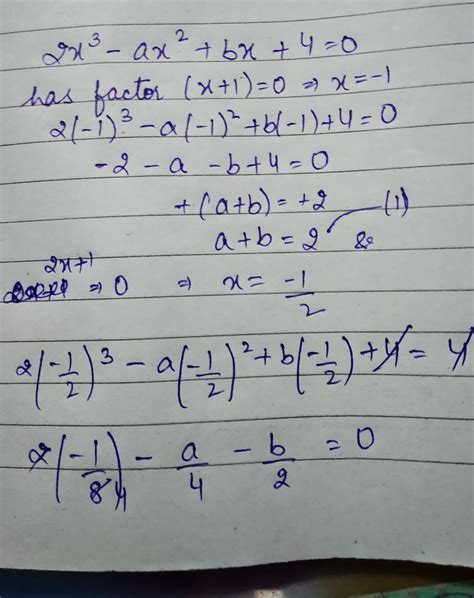 2x³ - ax² + bx + 4 = 0
has factor (x+1)=0 ⇒ x=-1
2(-1)³ - a(-1)² + b(-1) + 4 = 0
-2 - a - b + 4 = 0
+(a+b) = +2 (1)
a+b = 2 &
2x+1
⇒ 0 ⇒ x = -1/2
2(-1/2)³ - a(-1/2)² + b(-1/2) + 4 = 4
2(-1/8 4) - a/4 - b/2 = 0